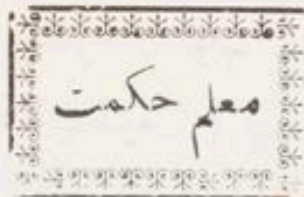 معلم حكمت